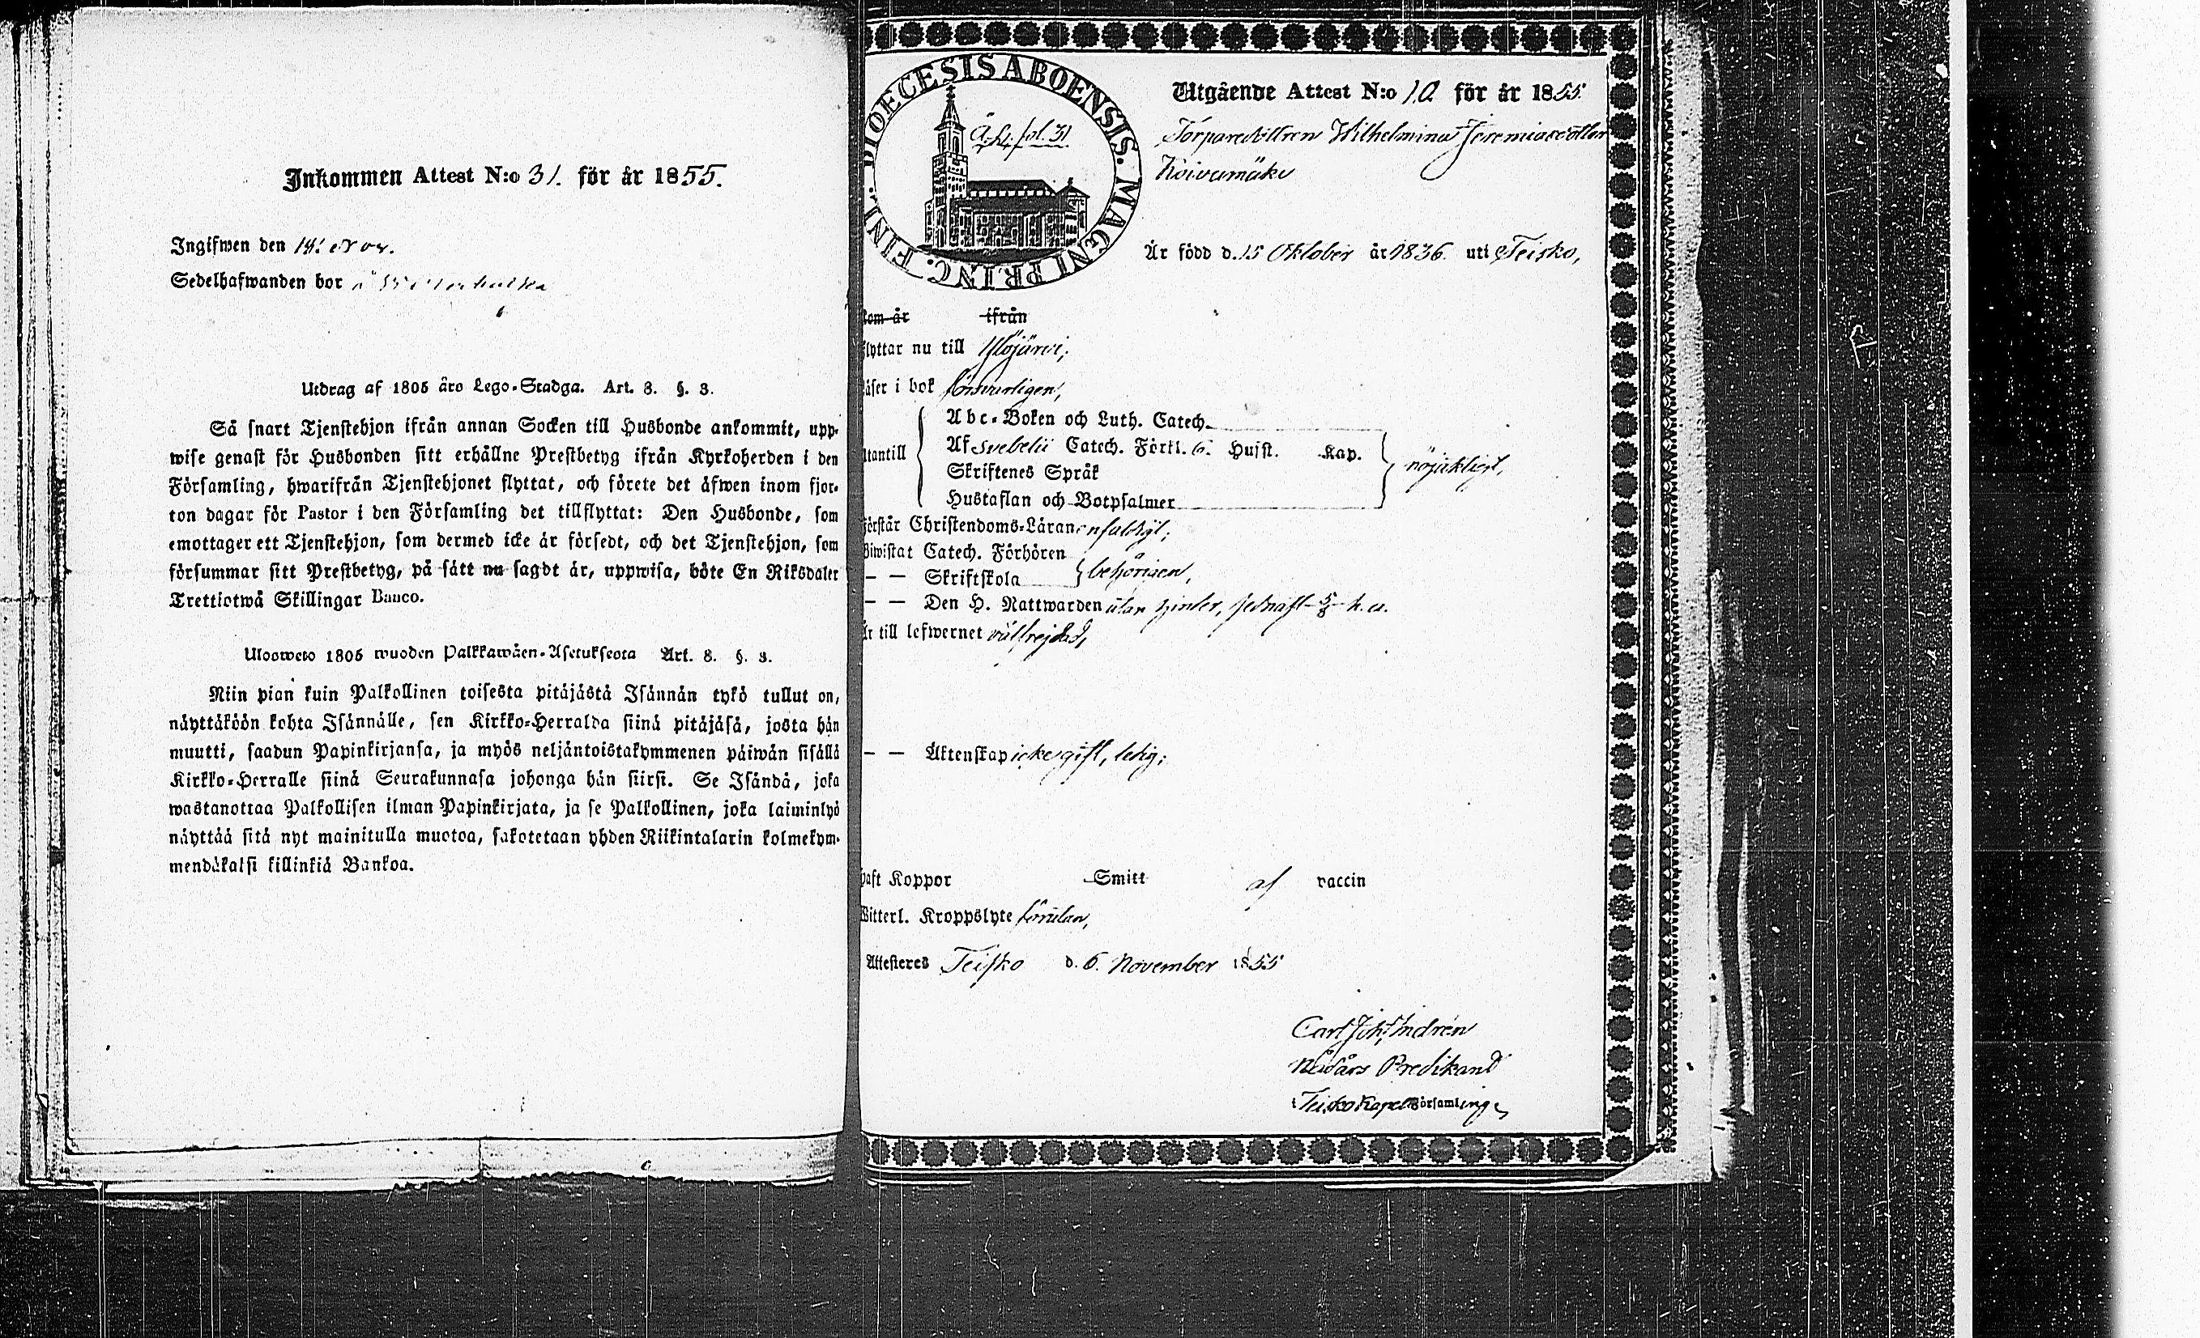 Inkommen Attest N:o 31. för år 1855.
Ingifwen den
Sedelhafwanden bor å
Utdrag af 1805 åro Lego-Stadga. Art. 8. §. 3.
Så snart Tjenstehjon ifrån annan Socken till Husbonde ankommit, upp-
wise genast för Husbonden sitt erhållne Prestbetyg ifrån Kyrkoherden i den
Församling, hwarifrån Tjenstehjonet flyttat, och förete det äfwen inom fjor-
ton dagar för Pastor i den Församling det tillflyttat: Den Husbonde, som
emottager ett Tjenstehjon, som dermed icke är försedt, och det Tjenstehjon, som
försummar sitt Prestbetyg, på sätt nu sagdt är, uppwisa, böte En Riksdaler
Trettiotwå Skillingar Banco.
Ulosweto 1805 wuoden Palkkawäen-Asetuksesta Art. 8. §. 3.
Niin pian kuin Palkollinen toisesta pitäjästä Isännän tykö tullut on,
näyttäköön kohta Isännälle, sen Kirkko-Herralda siinä pitäjäsä, josta hän
muutti, saadun Papinkirjansa, ja myös neljäntoistakymmenen päiwän sisällä
Kirkko-Herralle siinä Seurakunnasa johonga hän siirsi. Se Isändä, joka
wastanottaa Palkollisen ilman Papinkirjata, ja se Palkollinen, joka laiminlyö
näyttää sitä nyt mainitulla muotoa, sakotetaan yhden Riikintalarin kolmekym-
mendäkaksi killinkiä Bankoa.
DIOECESIS ABOENSIS. MAGNI PRINC. FINL.
fol. 31
Utgående Attest N:o 10 för år 1855.
Torparedottren Wilhelmina Jeremiasdotter
Koivumäki
Är född d. 15 Oktober år 1836. uti Teisko,
kom år ifrån
flyttar nu till Ylöjärvi;
läser i bok försvarligen,
Abc-Boken och Luth. Catech.
utantill Af Svebelii Catech. Förkl. 6. Husst. Kap. nöjaktigt,
Skriftenes Språk
Hustaflan och Botpsalmer
förstår Christendoms-Läran enfaldigt;
Biwistat Catech. Förhören
— — Skriftskola behörigen,
— — Den H. Nattwarden utan hinder, sednast 5/8 h. a.
är till lefwernet välfrejdad,
— — Äktenskap icke gift, ledig;
haft Koppor Smitt af vaccin
Witterl. Kroppslyte förutan,
Attesteres Teisko d. 6. November 1855
Carl Joh. Indrén
Nådårs Predikand
i Teisko Kapell Församling.